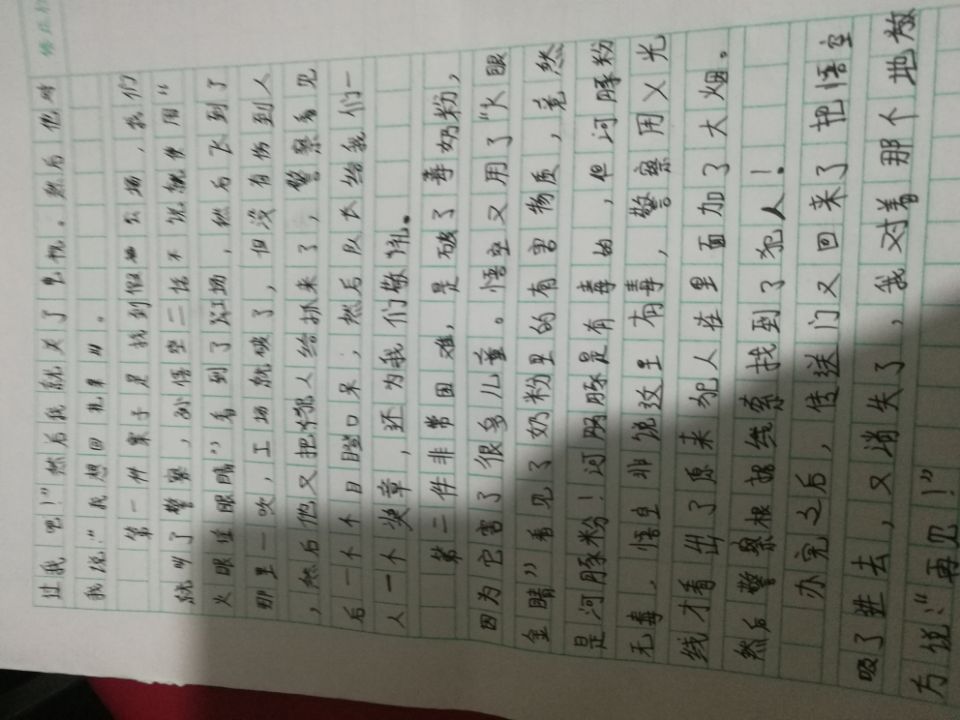 过我吧！”然后我就关了电视。然后他对
我说：“我想回
第一件案子是找到假
就叫了警察，孙悟空二话不说就使用“
火眼金睛”看到了工场，然后飞到了
那里一吹，工场就破了，但没有伤到人
，然后他又把犯人给抓来了，警察看见
后一个个目瞪口呆，然后队长给我们一
人一个奖章，还为我们敬礼。
第二件非常困难，是破了毒奶粉，
因为它害了很多儿童。悟空又用了“火眼
金睛”看见了奶粉里的有害物质，竟然
是河豚粉！河豚是有毒的，但河豚粉
无毒，悟空非说这里有毒，警察用义光
线才看出了原来犯人在里面加了大烟。
然后警察根据线索找到了犯人！
办完之后，传送门又回来了把悟空
吸了进去，又消失了，我对着那个地放
方说：“再见！”